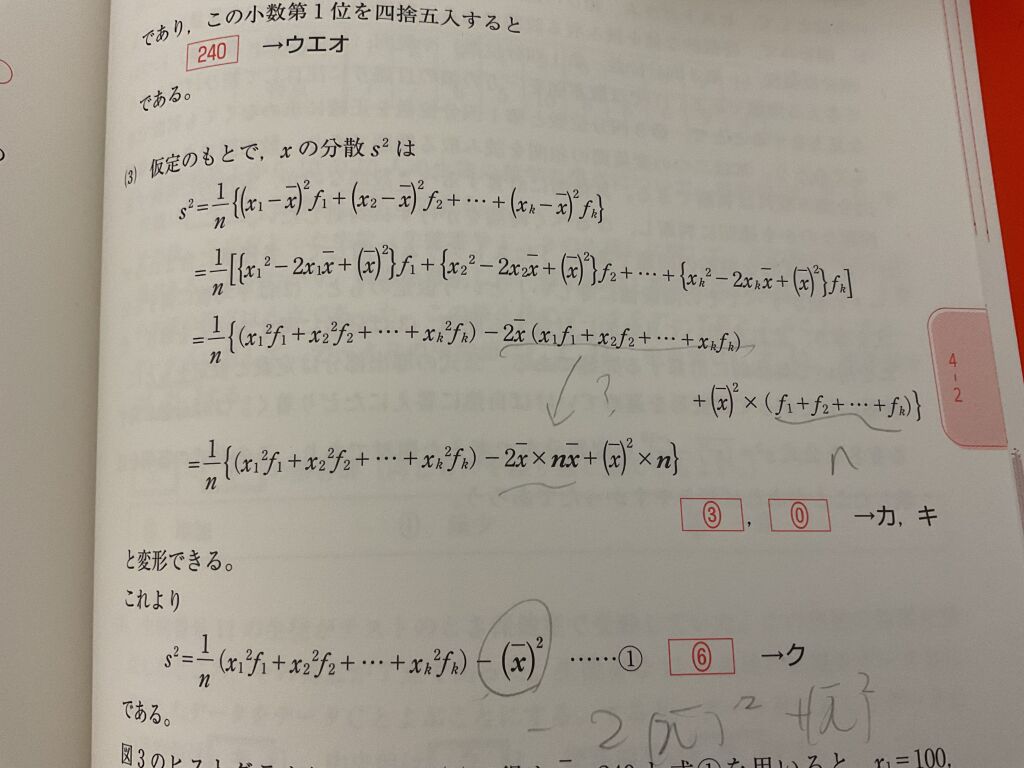 であり，この小数第1位を四捨五入すると
240 →ウエオ
である。
(3) 仮定のもとで，xの分散s²は
s²=1/n{(x₁−x̄)²f₁+(x₂−x̄)²f₂+⋯+(xₖ−x̄)²fₖ}
=1/n[{x₁²−2x₁x̄+(x̄)²}f₁+{x₂²−2x₂x̄+(x̄)²}f₂+⋯+{xₖ²−2xₖx̄+(x̄)²}fₖ]
=1/n{(x₁²f₁+x₂²f₂+⋯+xₖ²fₖ)−2x̄(x₁f₁+x₂f₂+⋯+xₖfₖ)
?
+(x̄)²×(f₁+f₂+⋯+fₖ)}
=1/n{(x₁²f₁+x₂²f₂+⋯+xₖ²fₖ)−2x̄×nx̄+(x̄)²×n}
n
③，⓪ →カ，キ
と変形できる。
これより
s²=1/n(x₁²f₁+x₂²f₂+⋯+xₖ²fₖ)−(x̄)² ……① ⑥ →ク
である。
−2(x̄)²+(x̄)²
4-2